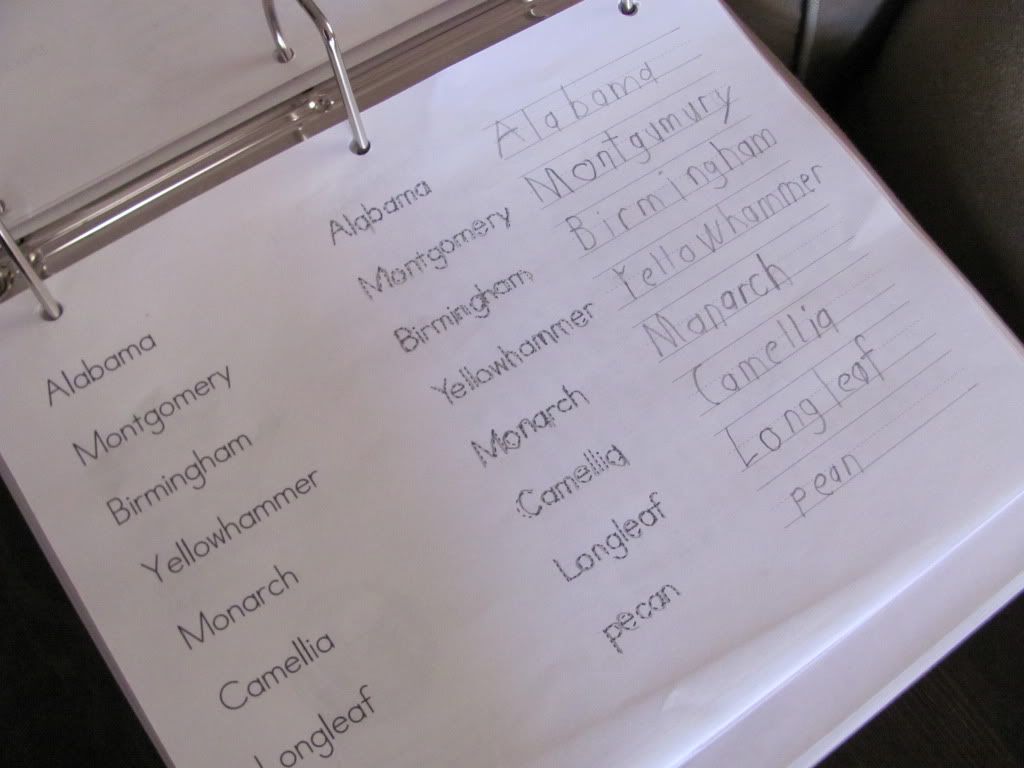 Alabama Alabama Alabama
Montgomery Montgomery Montgumury
Birmingham Birmingham Birmingham
Yellowhammer Yellowhammer YelloWhammer
Monarch Monarch Manarch
Camellia Camellia Camellia
Longleaf Longleaf Longleaf
pecan pean